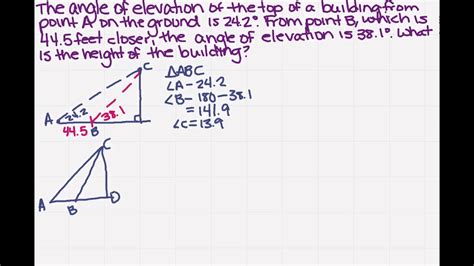 The angle of elevation of the top of a building from
point A on the ground is 24.2°. From point B, which is
44.5 feet closer, the angle of elevation is 38.1°. What
is the height of the building?
C
△ABC
∠A - 24.2
∠B - 180 - 38.1
= 141.9
∠C = 13.9
A 24.2 38.1
44.5 B
C
A B D